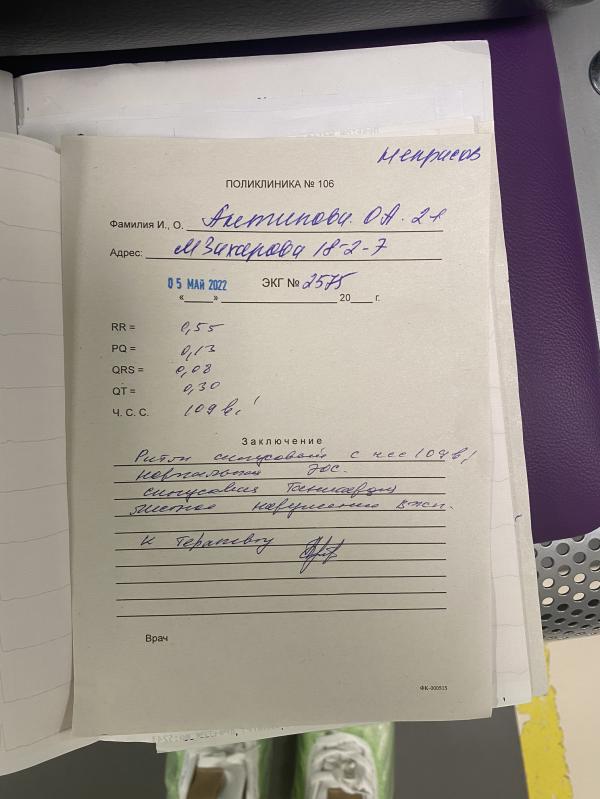 Некрасов
ПОЛИКЛИНИКА № 106
Фамилия И., О. Антипова. О А. 21
Адрес: М Захарова 18-2-7
05 МАЙ 2022 ЭКГ № 2575
«    » 20 г.
RR = 0,55
PQ = 0,13
QRS = 0,08
QT = 0,30
Ч. С. С. 109 в,!
Заключение
Ритм синусовый с чсс 109 в,!
Нормальная ЭОС.
синусовая тахикардия
местное нарушение в/жп.
К терапевту
Врач
ФК-000515